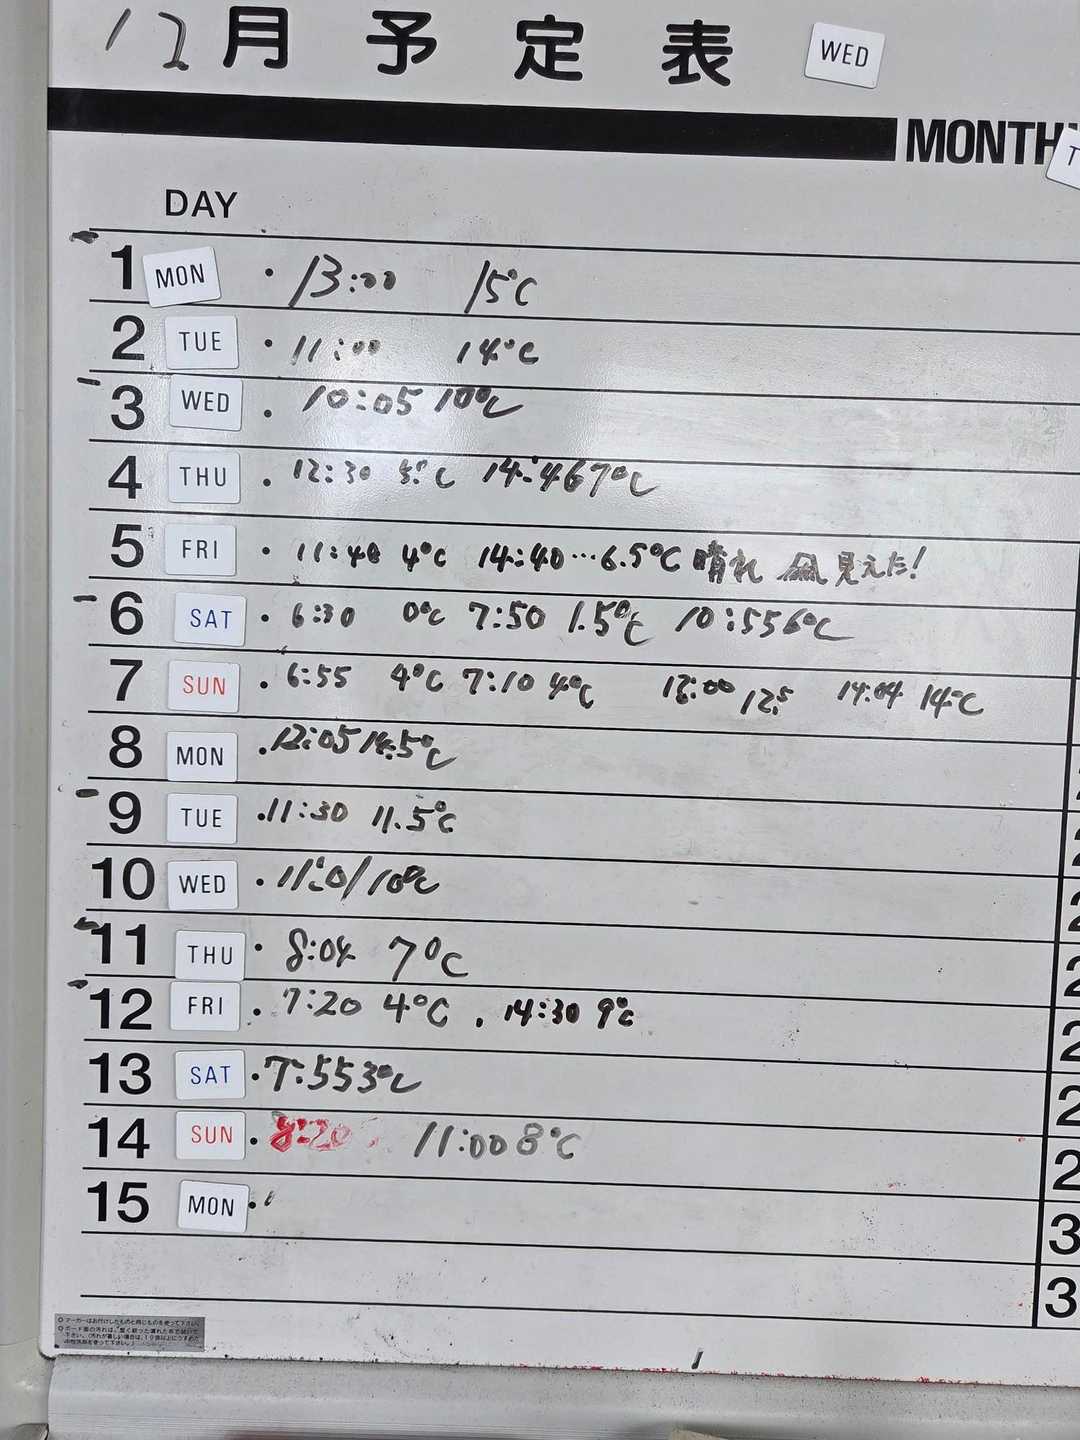 12月 予定表 WED
MONTH
DAY
1 MON ・13:00 15℃
2 TUE ・11:00 14℃
3 WED ・10:05 10℃
4 THU ・12:30 ℃ 14:46 7℃
5 FRI ・11:40 4℃ 14:40…6.5℃ 晴れ 見えた!
6 SAT ・6:30 0℃ 7:50 1.5℃ 10:55 6℃
7 SUN ・6:55 4℃ 7:10 4℃ 12:00 12.5 14:04 14℃
8 MON ・12:05 14.5℃
9 TUE ・11:30 11.5℃
10 WED ・11:01 10℃
11 THU ・8:04 7℃
12 FRI ・7:20 4℃ ・14:30 9℃
13 SAT ・7:55 3℃
14 SUN ・8:20 11:00 8℃
15 MON ・